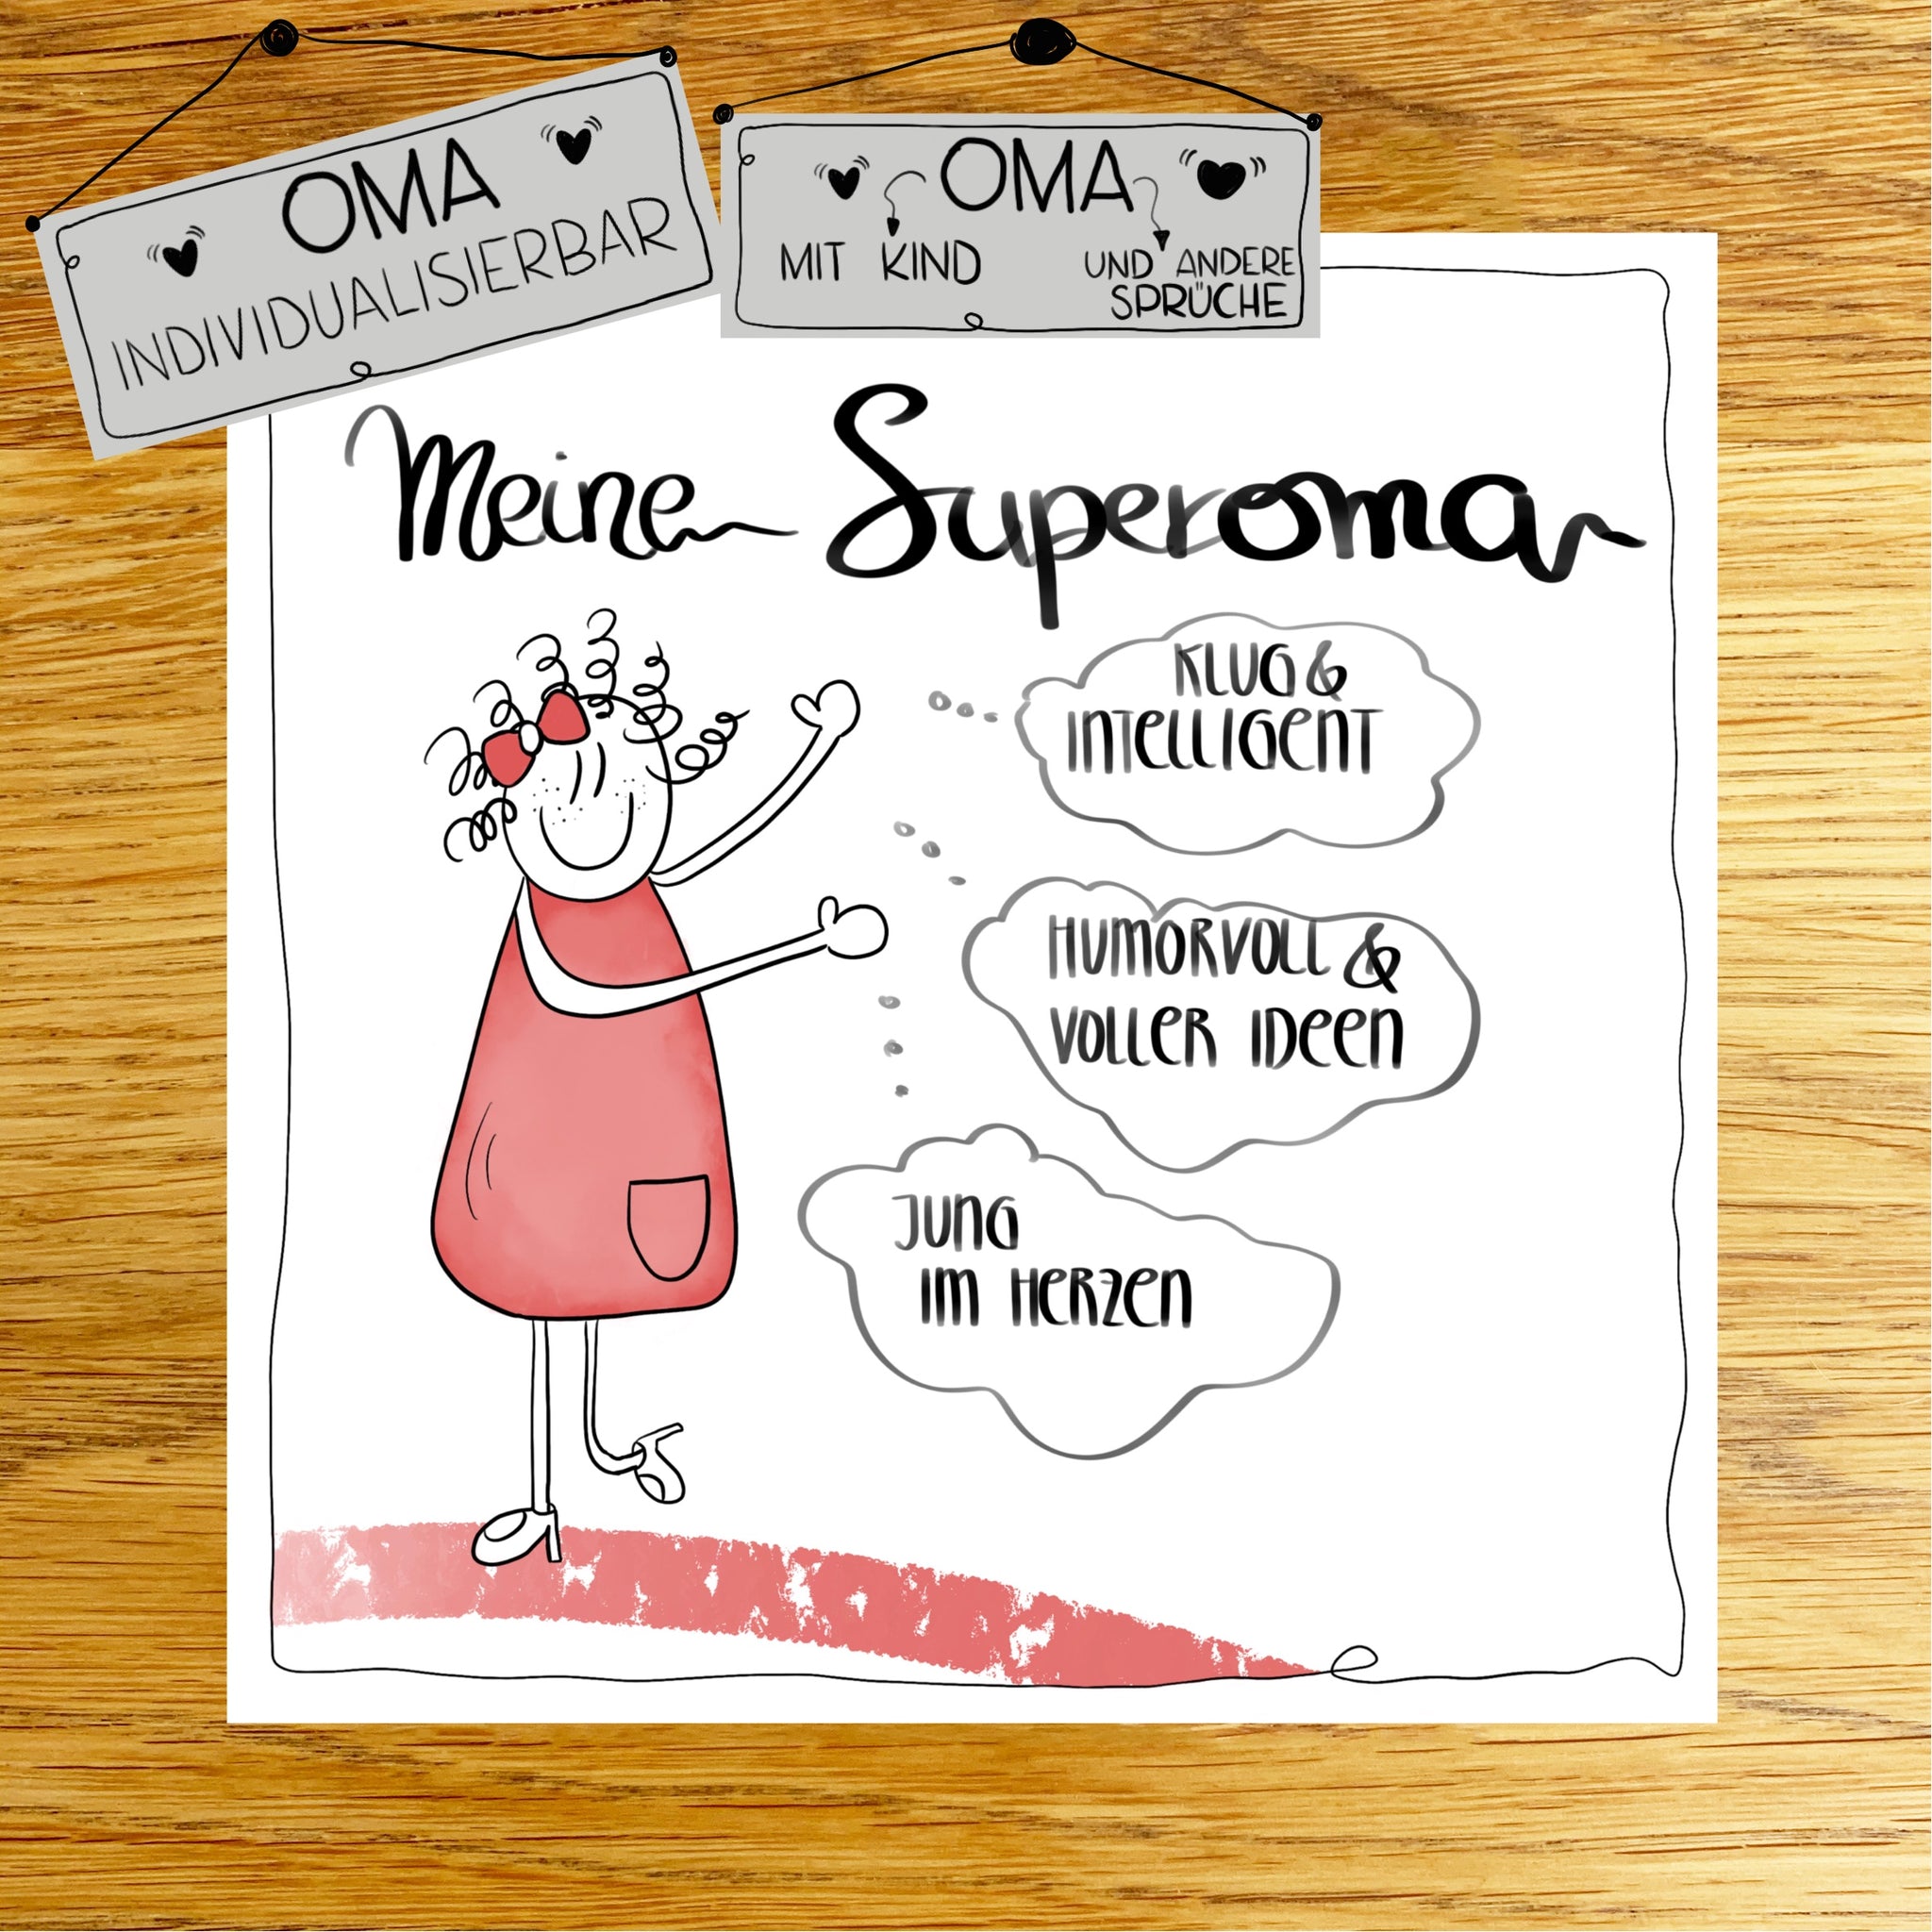 OMA
INDIVIDUALISIERBAR
OMA
MIT KIND
UND ANDERE
SPRÜCHE
Meine Superoma
KLUG &
INTELLIGENT
HUMORVOLL &
VOLLER IDEEN
JUNG
IM HERZEN